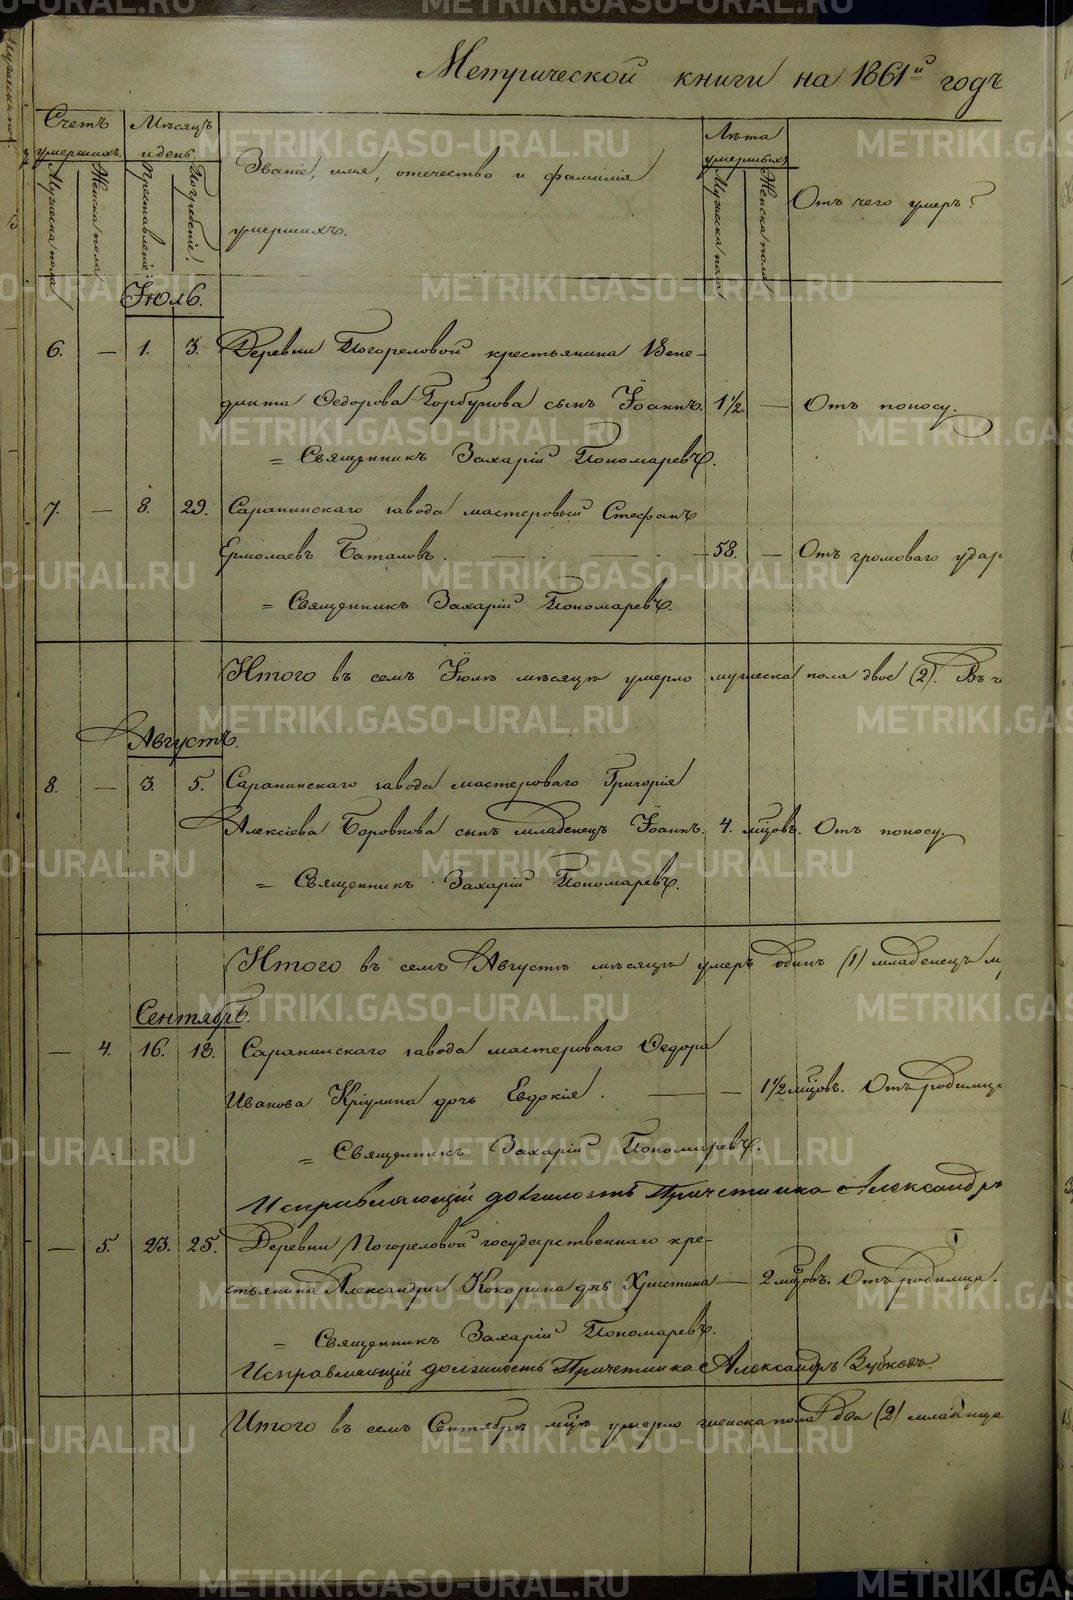 Метрической книги на 1861й годъ
Счетъ умершихъ.
Мужеска пола
Женска пола
Мѣсяцъ и день.
Преставленіе.
Погребеніе.
Званіе, имя, отечество и фамилія
умершихъ.
Лѣта умершихъ
Мужеска пола
Женска пола
Отъ чего умеръ?
Іюль.
6. — 1. 3. Деревни Погореловой крестьянина Вене-
дикта Ѳедорова Горбунова сынъ Іоаннъ. 1½. — Отъ поносу.
= Священникъ Захарій Пономаревъ.
7. — 8. 29. Саранинскаго завода мастеровый Стефанъ
Ермолаевъ Баталовъ. — 58. — Отъ громоваго удар
= Священникъ Захарій Пономаревъ.
Итого въ семъ Іюлѣ мѣсяцѣ умерло мужеска пола двое (2). Въ
Августъ.
8. — 3. 5. Саранинскаго завода мастероваго Григорія
Алексіева Боровкова сынъ младенецъ Іоаннъ. 4. мцовъ. Отъ поносу.
= Священникъ Захарій Пономаревъ.
Итого въ семъ Августѣ мѣсяцѣ умеръ одинъ (1) младенецъ м
Сентябрь.
— 4. 16. 18. Саранинскаго завода мастероваго Ѳедора
Иванова Кріулина дочь Евдокія. — — 1½ мцовъ. Отъ родимца
= Священникъ Захарій Пономаревъ.
Исправляющій должность Причетника Александръ
— 5. 23. 25. Деревни Погореловой государственнаго кре-
стьянина Александра Кокорина дчь Христина — 2 мцовъ. Отъ родимца.
= Священникъ Захарій Пономаревъ.
Исправляющій должность Причетника Александръ Зубковъ.
Итого въ семъ Сентябрѣ мцѣ умерло женска пола два (2) младенца
METRIKI.GASO-URAL.RU